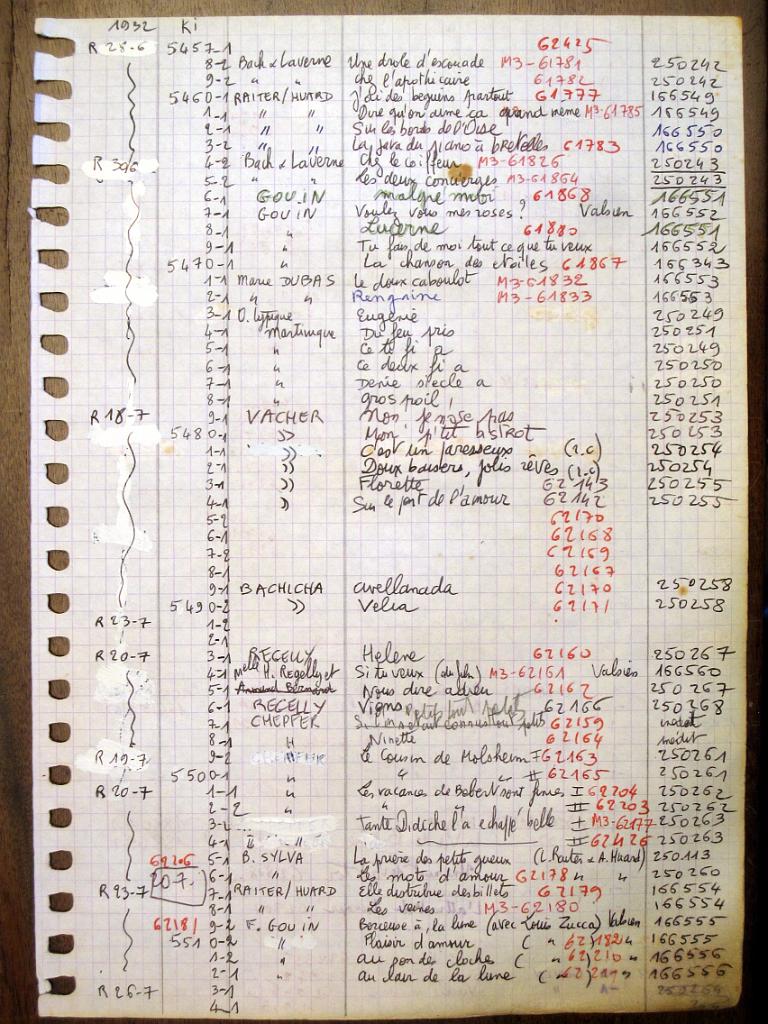 1932 Ki
R 28-6 5457-1 62425
8-2 Bach & Laverne Une drole d'escouade M3-61781 250242
9-2 " " chez l'apothicaire 61782 250242
5460-1 RAITER/HUARD J'ai des beguins partout 61777 166549
1-1 " " Dire qu'on aime ça quand même M3-61785 166549
2-1 " " Sur les bords de l'Oise 166550
3-2 " " La java du piano à bretelles 61783 166550
R 30-6 4-2 Bach & Laverne Chez le coiffeur M3-61826 250243
5-2 " " Les deux concierges M3-61864 250243
6-1 GOUIN malgré moi 61868 166551
7-1 GOUIN Voulez vous mes roses? Valsien 166552
8-1 " Lucerne 61880 166551
9-1 " Tu fais de moi tout ce que tu veux 166552
5470-1 " La chanson des étoiles 61867 166343
1-1 Marie DUBAS Le doux caboulot M3-61832 166553
2-1 " " Rengaine M3-61833 166553
3-1 O. typique Eugénie 250249
4-1 Martinique Du feu pris 250251
5-1 " Ce ti fi a 250249
6-1 " Ce deux fi a 250250
7-1 " Denie siecle a 250250
8-1 " Gros poil! 250251
R 18-7 9-1 VACHER Mon je n'ose pas 250253
5480-1 » Mon p'tit bistrot 250253
1-1 » C'est un paresseux (i.c) 250254
2-1 » Doux baisers, jolis rêves (i.c) 250254
3-1 » Florette 62143 250255
4-1 » Sur le pont de l'amour 62142 250255
5-2 62170
6-1 62168
7-2 62169
8-1 62167
9-1 BACHICHA avellanada 62170 250258
5490-2 » Velia 62171 250258
R 23-7 1-2
2-1
R 20-7 3-1 REGELLY Helene 62160 250267
4-1 Melle H. Regelly et Si tu veux (du film) M3-62161 Valsien 166560
5-1 Armand Bernard Nous dire adieu 62162 250267
6-1 REGELLY Vigno Petit tout petit 62166 250268
7-1 CHEPFER connus tout petits 62159 inédit
8-1 " Ninette 62164 inédit
R 19-7 9-2 CHEPFER Le Cousin de Molsheim I 62163 250261
5500-1 " " " II 62165 250261
R 20-7 1-1 " Les vacances de Bebert sont finies I 62204 250262
2-2 " " II 62203 250262
3-2 Tante Didiche l'a echappé belle I M3-62177 250263
4-1 II " II 62426 250263
62206 5-1 B. SYLVA La prière des petits gueux (L. Raiter & A. Huard) 250113
20-7. 6-1 " Les mots d'amour 62178 " " 250260
R 23-7 7-1 RAITER/HUARD Elle distribue des billets 62179 166554
8-1 " " Les veines M3-62180 166554
62181 9-2 F. GOUIN Berceuse à la lune (avec Louis Zucca) Valsien 166555
5510-2 " Plaisir d'amour ( " 62182 " 166555
1-2 " au son des cloches ( " 62210 " 166556
2-1 " au clair de la lune ( " 62211 " 166556
R 26-7 3-1 250264
4-1